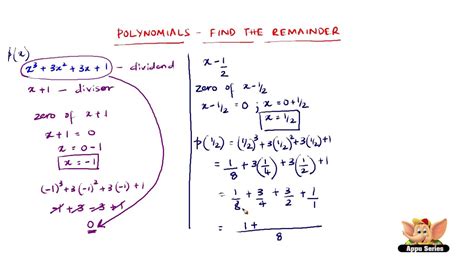 POLYNOMIALS - FIND THE REMAINDER
p(x)
x³ + 3x² + 3x + 1 - dividend
x + 1 - divisor
zero of x+1
x + 1 = 0
x = 0-1
x = -1
(-1)³ + 3(-1)² + 3(-1) + 1
-1 + 3 - 3 + 1
0
x - 1/2
zero of x - 1/2
x - 1/2 = 0 ; x = 0 + 1/2
x = 1/2
p(1/2) = (1/2)³ + 3(1/2)² + 3(1/2) + 1
= 1/8 + 3(1/4) + 3(1/2) + 1
= 1/8 + 3/4 + 3/2 + 1/1
= 1+ / 8
Appu Series